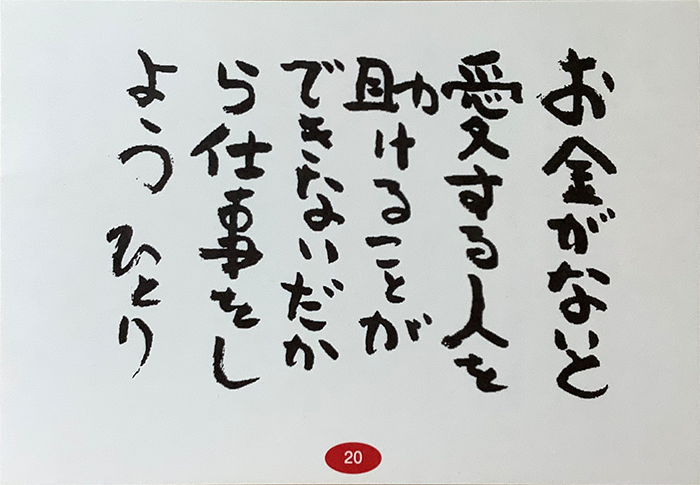 お金がないと
愛する人を
助けることが
できないだか
ら仕事をし
よう ひとり
20